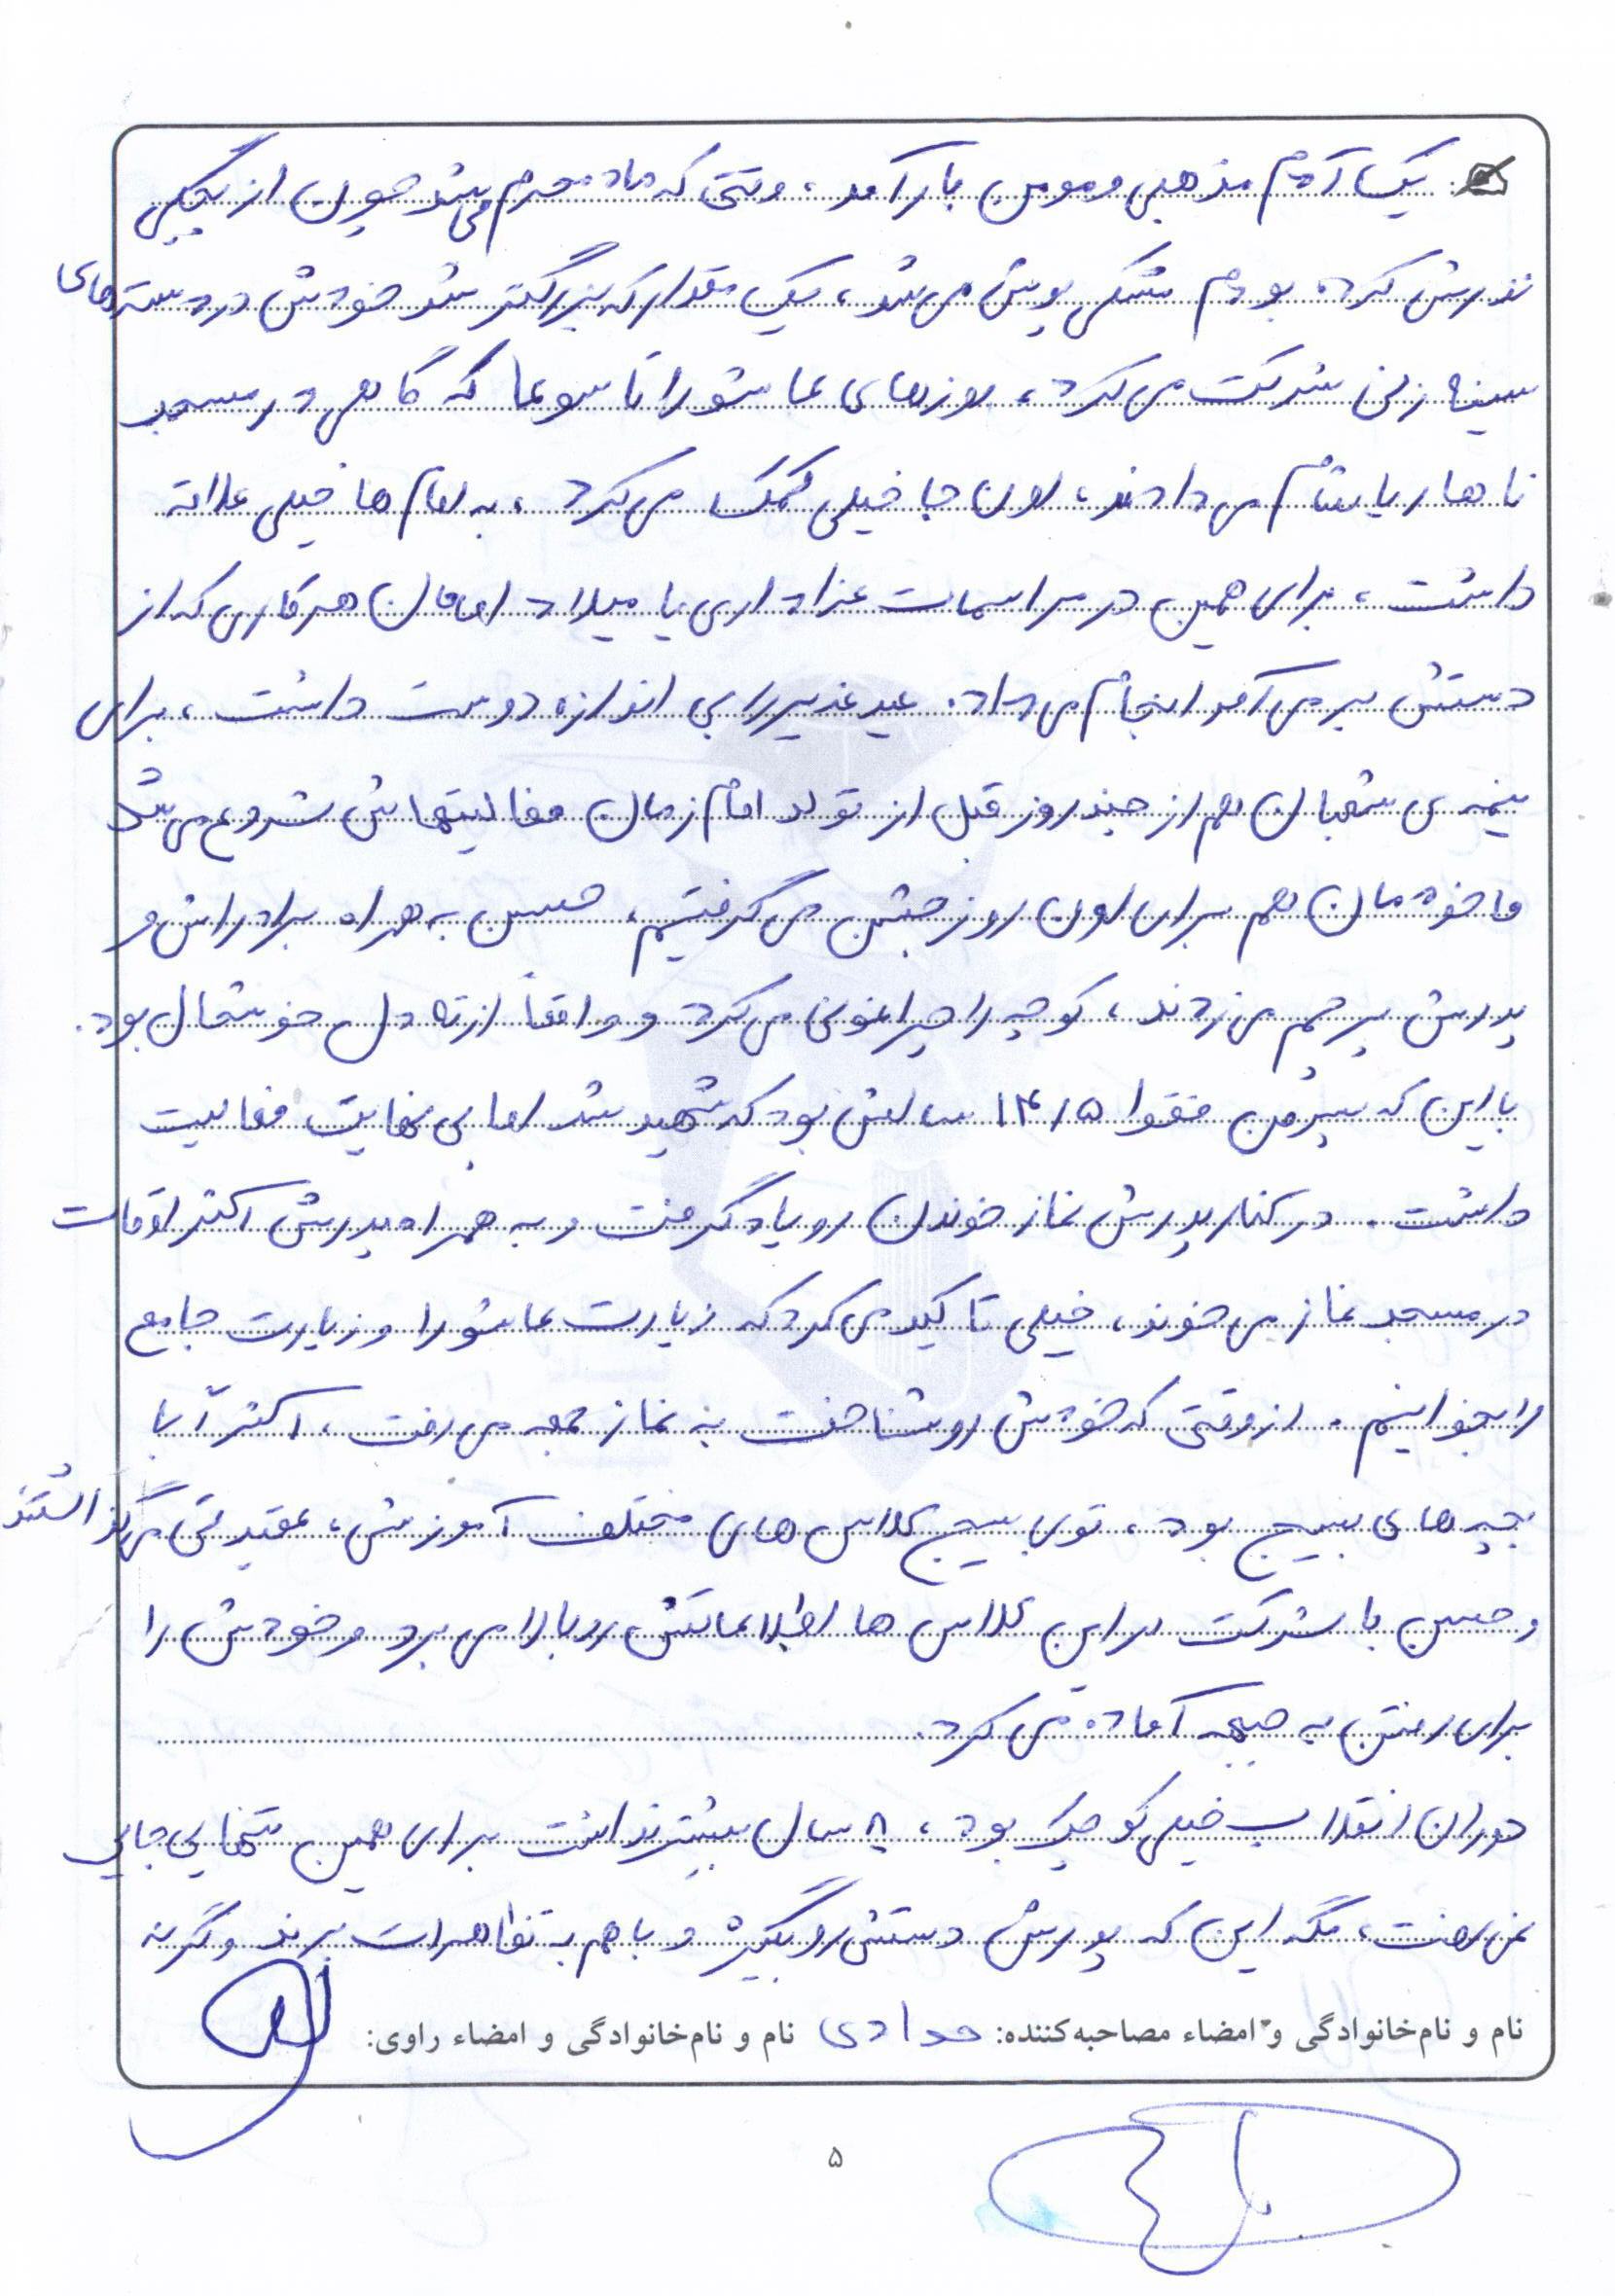 یک آدم مذهبی و مومن بار آمد، وقتی که ماه محرم می‌شد چون از بچگی
نذرش کرده بودم مشکی پوش می‌شد، یک مقدار که بزرگتر شد خودش در دسته‌های
سینه زنی شرکت می‌کرد، روزهای عاشورا تاسوعا که گاهی در مسجد
ناهار یا شام می‌دادند، اون جا خیلی کمک می‌کرد، به امام ها خیلی علاقه
داشت، برای همین در مراسمات عزاداری یا میلاد امامان هر کاری که از
دستش بر می‌آمد انجام می‌داد. عید غدیر را بی اندازه دوست داشت، برای
نیمه‌ی شعبان هم از چند روز قبل از تولد امام زمان فعالیتهاش شروع می‌شد
ما خودمان هم برای اون روز جشن می‌گرفتیم، حسن به همراه برادراش و
پدرش پرچم می‌زدند، کوچه را چراغونی می‌کرد و واقعاً از ته دل خوشحال بود.
با این که پسر من فقط ۱۴/۵ سالش بود که شهید شد اما بی نهایت فعالیت
داشت. در کنار پدرش نماز خوندن رو یاد گرفت و به همراه پدرش اکثر اوقات
در مسجد نماز می‌خوند، خیلی تاکید می‌کرد که زیارت عاشورا و زیارت جامع
را بخوانیم. از وقتی که خودش رو شناخت به نماز جمعه می‌رفت، اکثراً با
بچه های بسیج بود، توی بسیج کلاس های مختلف آموزشی، عقیدتی می‌گذاشتند
و حسن با شرکت در این کلاس ها اطلاعاتش رو بالا می برد و خودش را
برای رفتن به جبهه آماده می کرد.
دوران انقلاب خیلی کوچیک بود، ۸ سال بیشتر نداشت برای همین تنهایی جایی
نمی‌رفت، مگه این که پدرش دستش رو بگیره و با هم به تظاهرات برند وگرنه
نام و نام‌خانوادگی و امضاء مصاحبه‌کننده: حدادی نام و نام‌خانوادگی و امضاء راوی:
۵